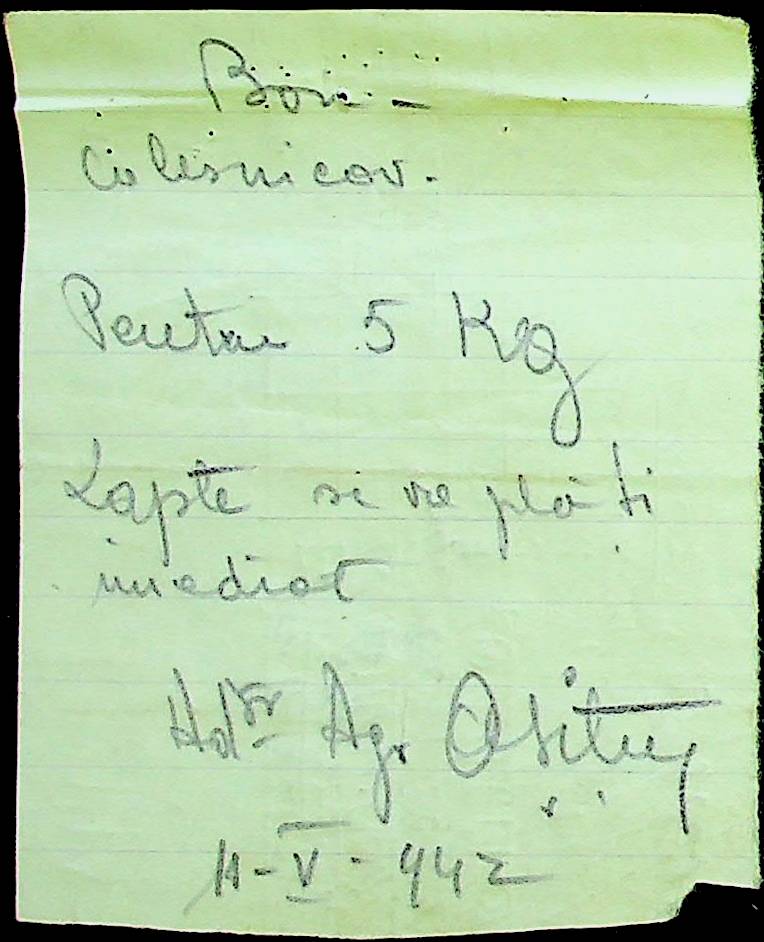 Bon -
Colesnicov.
Pentru 5 Kg
Lapte se va plăti
imediat
Agr
11-V-942